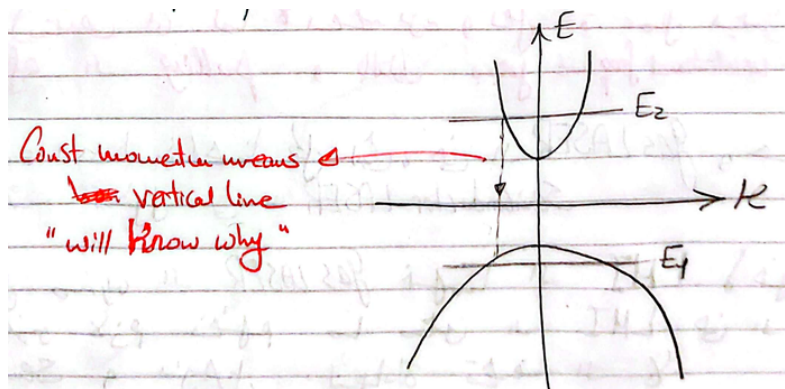 E
E2
Const momentum means
vertical line
"will know why"
K
E1